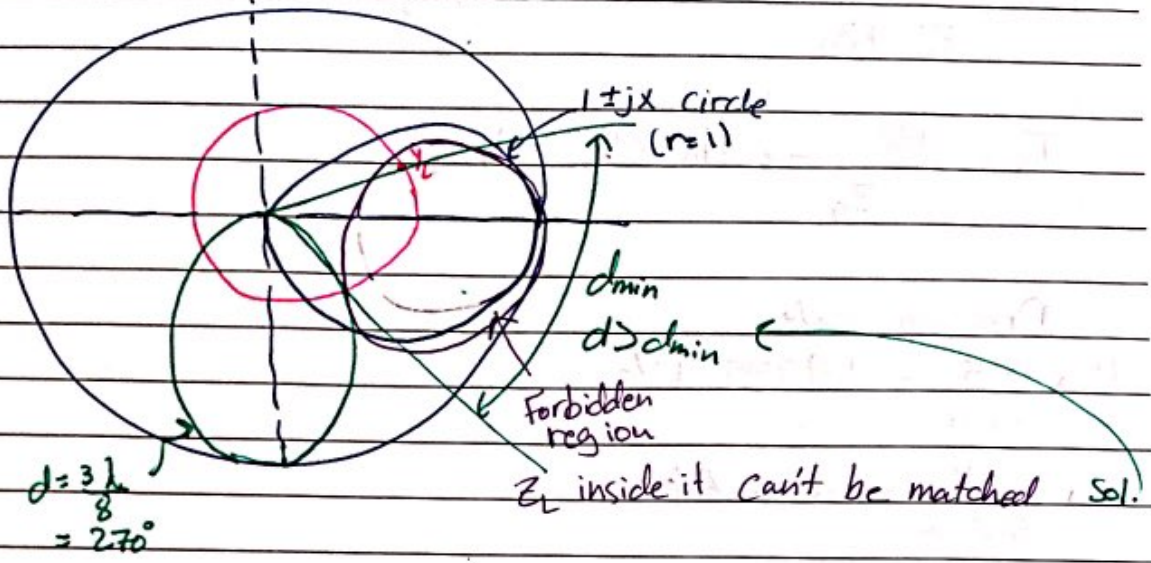 1 ± jX circle
(r=1)
Y_L
d_min
d > d_min
Forbidden
region
Z_L inside it can't be matched Sol.
d = 3λ/8
= 270°